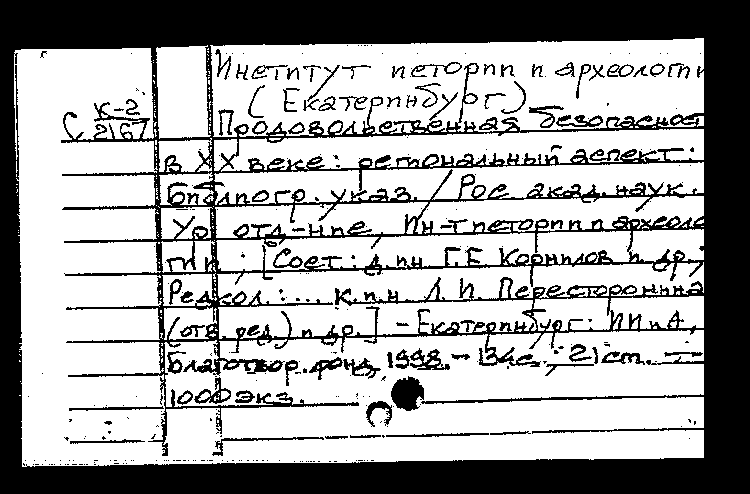 Институт истории и археологии
(Екатеринбург)
С К-2/2167
Продовольственная безопасност
в XX веке: региональный аспект:
Библиогр. указ. / Рос. акад. наук.
Ур. отд-ние, Ин-т истории и археоло
гии; [Сост.: д.и.н Г.Е Корнилов и др.;
Редкол.:... к.и.н. Л.И. Пересторонина
(отв. ред.) и др.] - Екатеринбург: ИИиА,
Благотвор. фонд, 1998. - 134с.; 21 см. —
1000 экз.